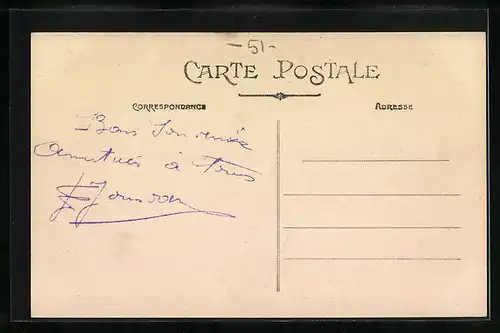 - 51 -
CARTE POSTALE
CORRESPONDANCE
ADRESSE
Bons Souvenirs
Amitiés à tous